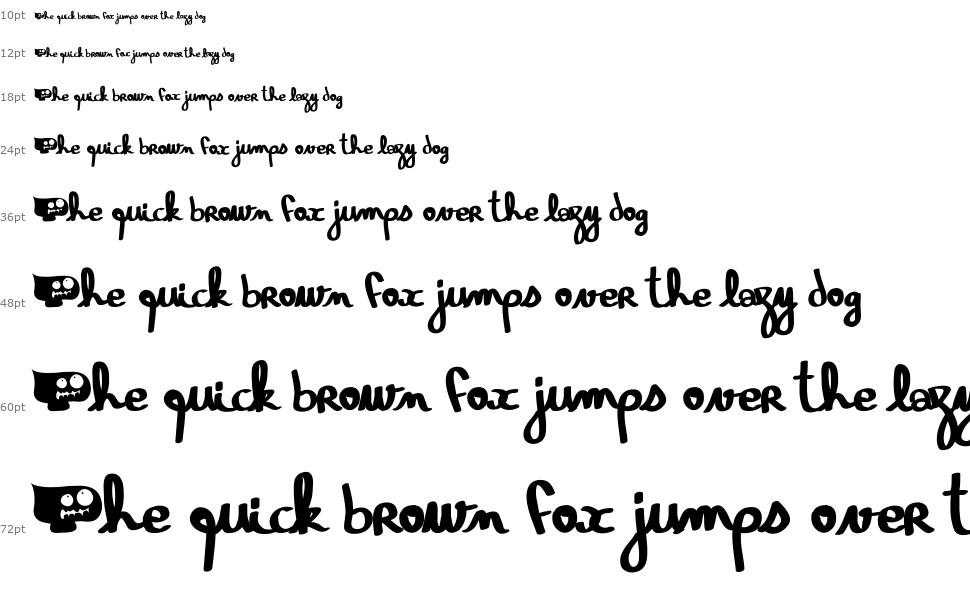 10pt The quick brown fox jumps over the lazy dog
12pt The quick brown fox jumps over the lazy dog
18pt The quick brown fox jumps over the lazy dog
24pt The quick brown fox jumps over the lazy dog
36pt The quick brown fox jumps over the lazy dog
48pt The quick brown fox jumps over the lazy dog
60pt The quick brown fox jumps over the lazy
72pt The quick brown fox jumps over t